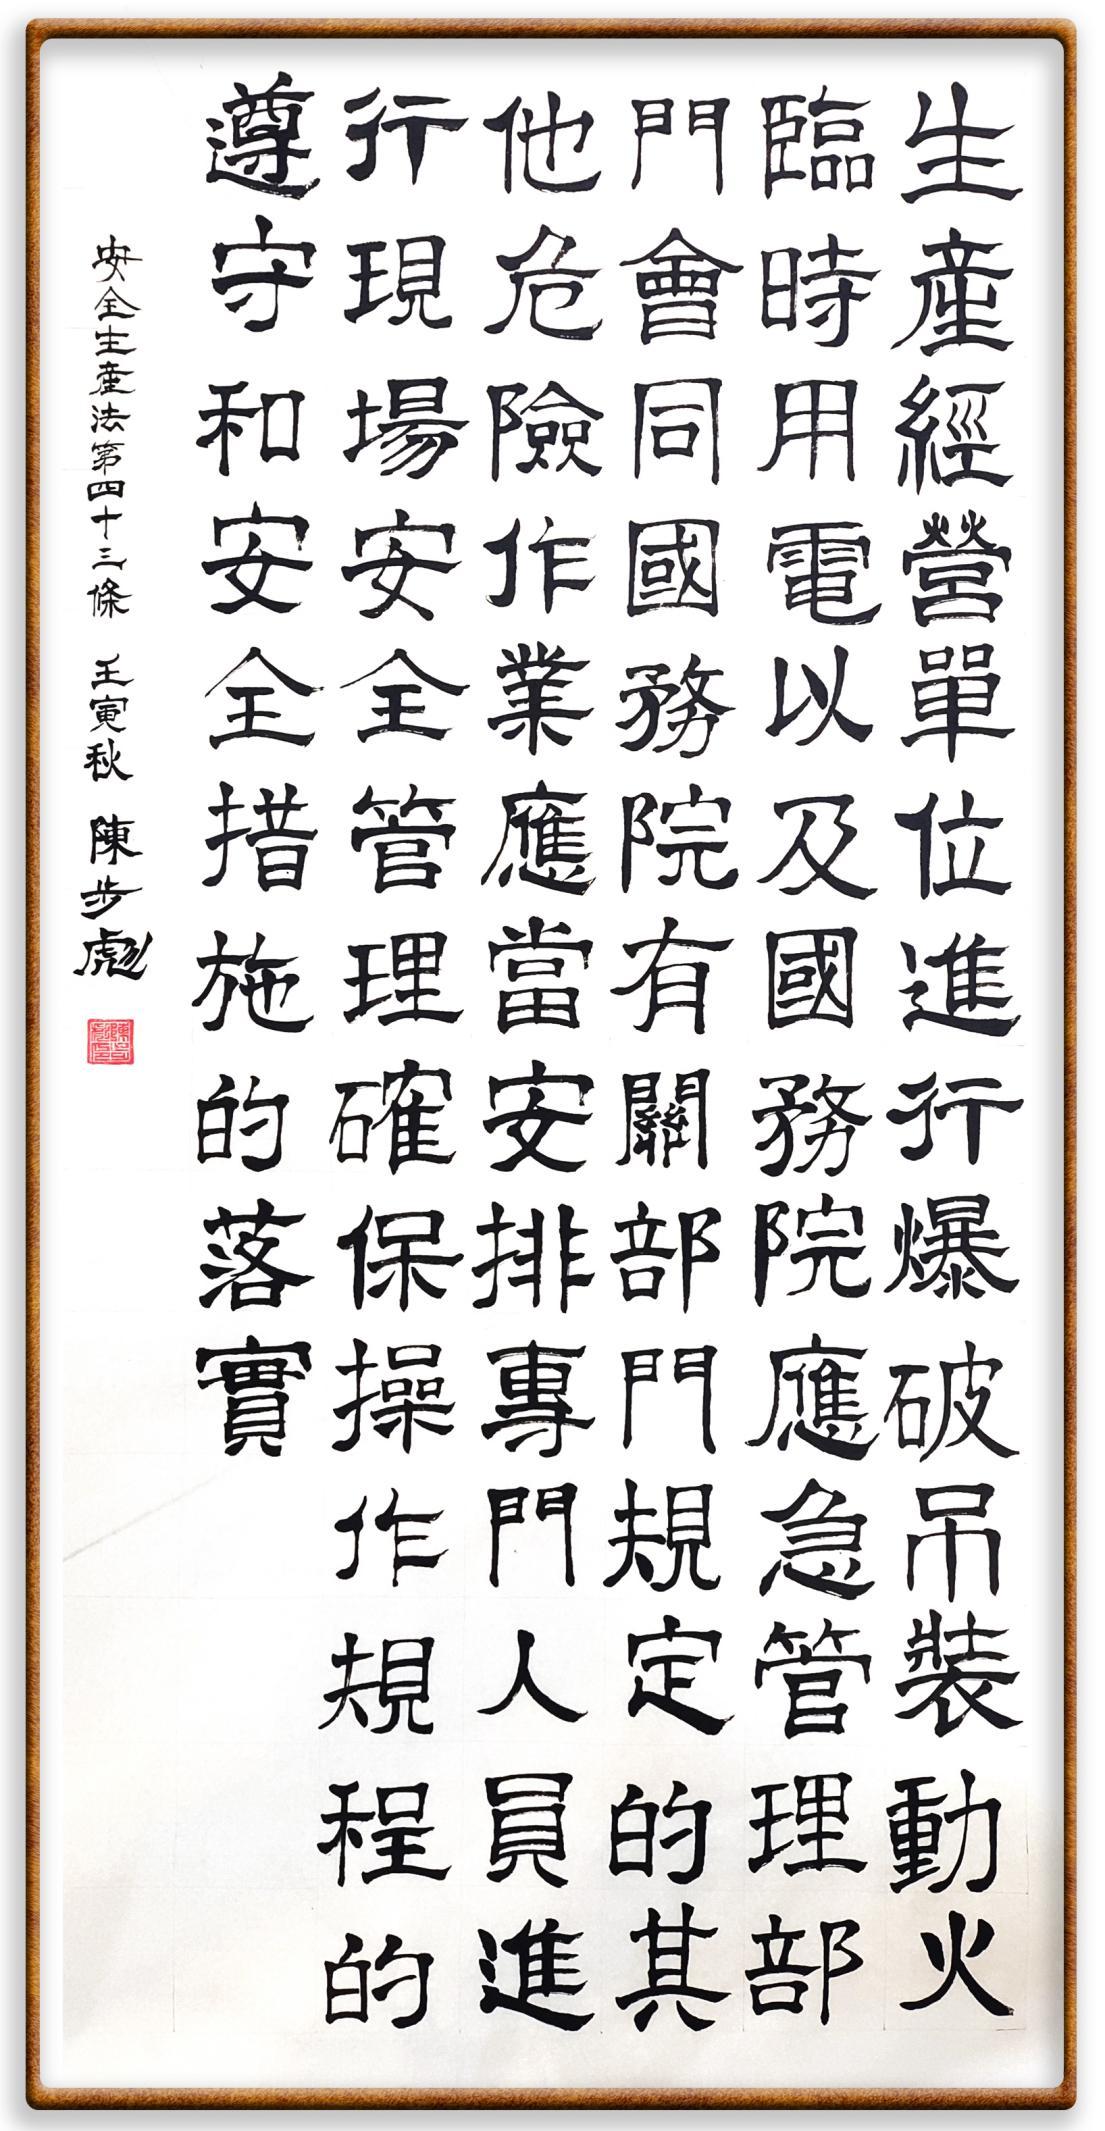 生產經營單位進行爆破吊裝動火
臨時用電以及國務院應急管理部
門會同國務院有關部門規定的其
他危險作業應當安排專門人員進
行現場安全管理確保操作規程的
遵守和安全措施的落實
安全生產法第四十三條 壬寅秋 陳步彪